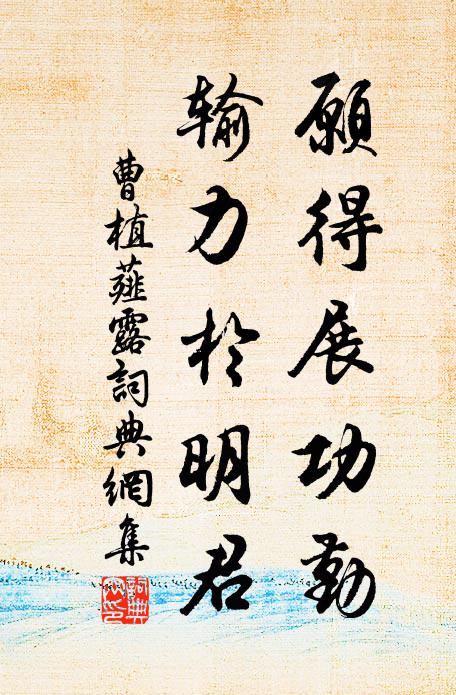 願得展功勤
輸力於明君
曹植薤露詞典網集
詞典